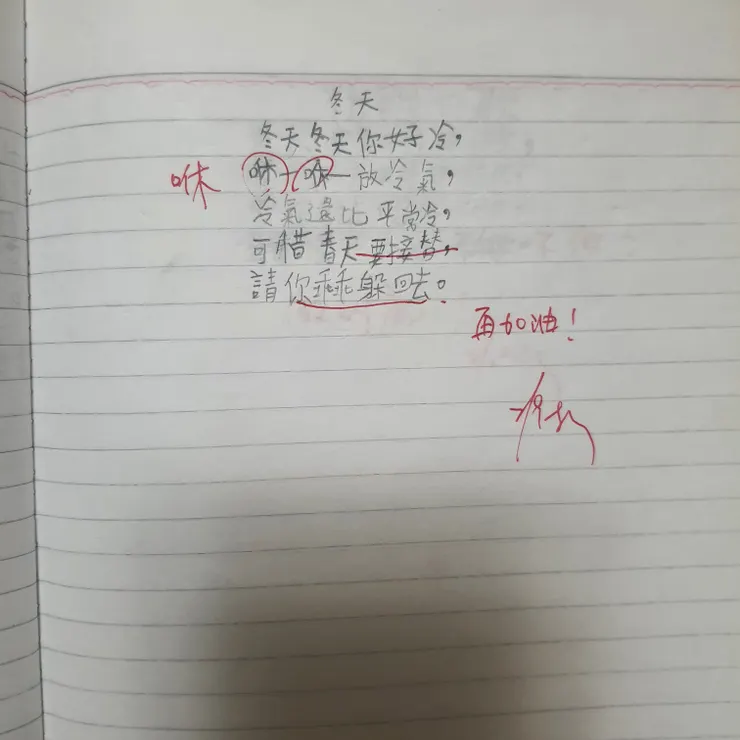 冬天
冬天冬天你好冷，
咻 咻—咻—放冷氣，
冷氣還比平常冷，
可腊春天要接替，
請你乖乖躲回去。
再加油！